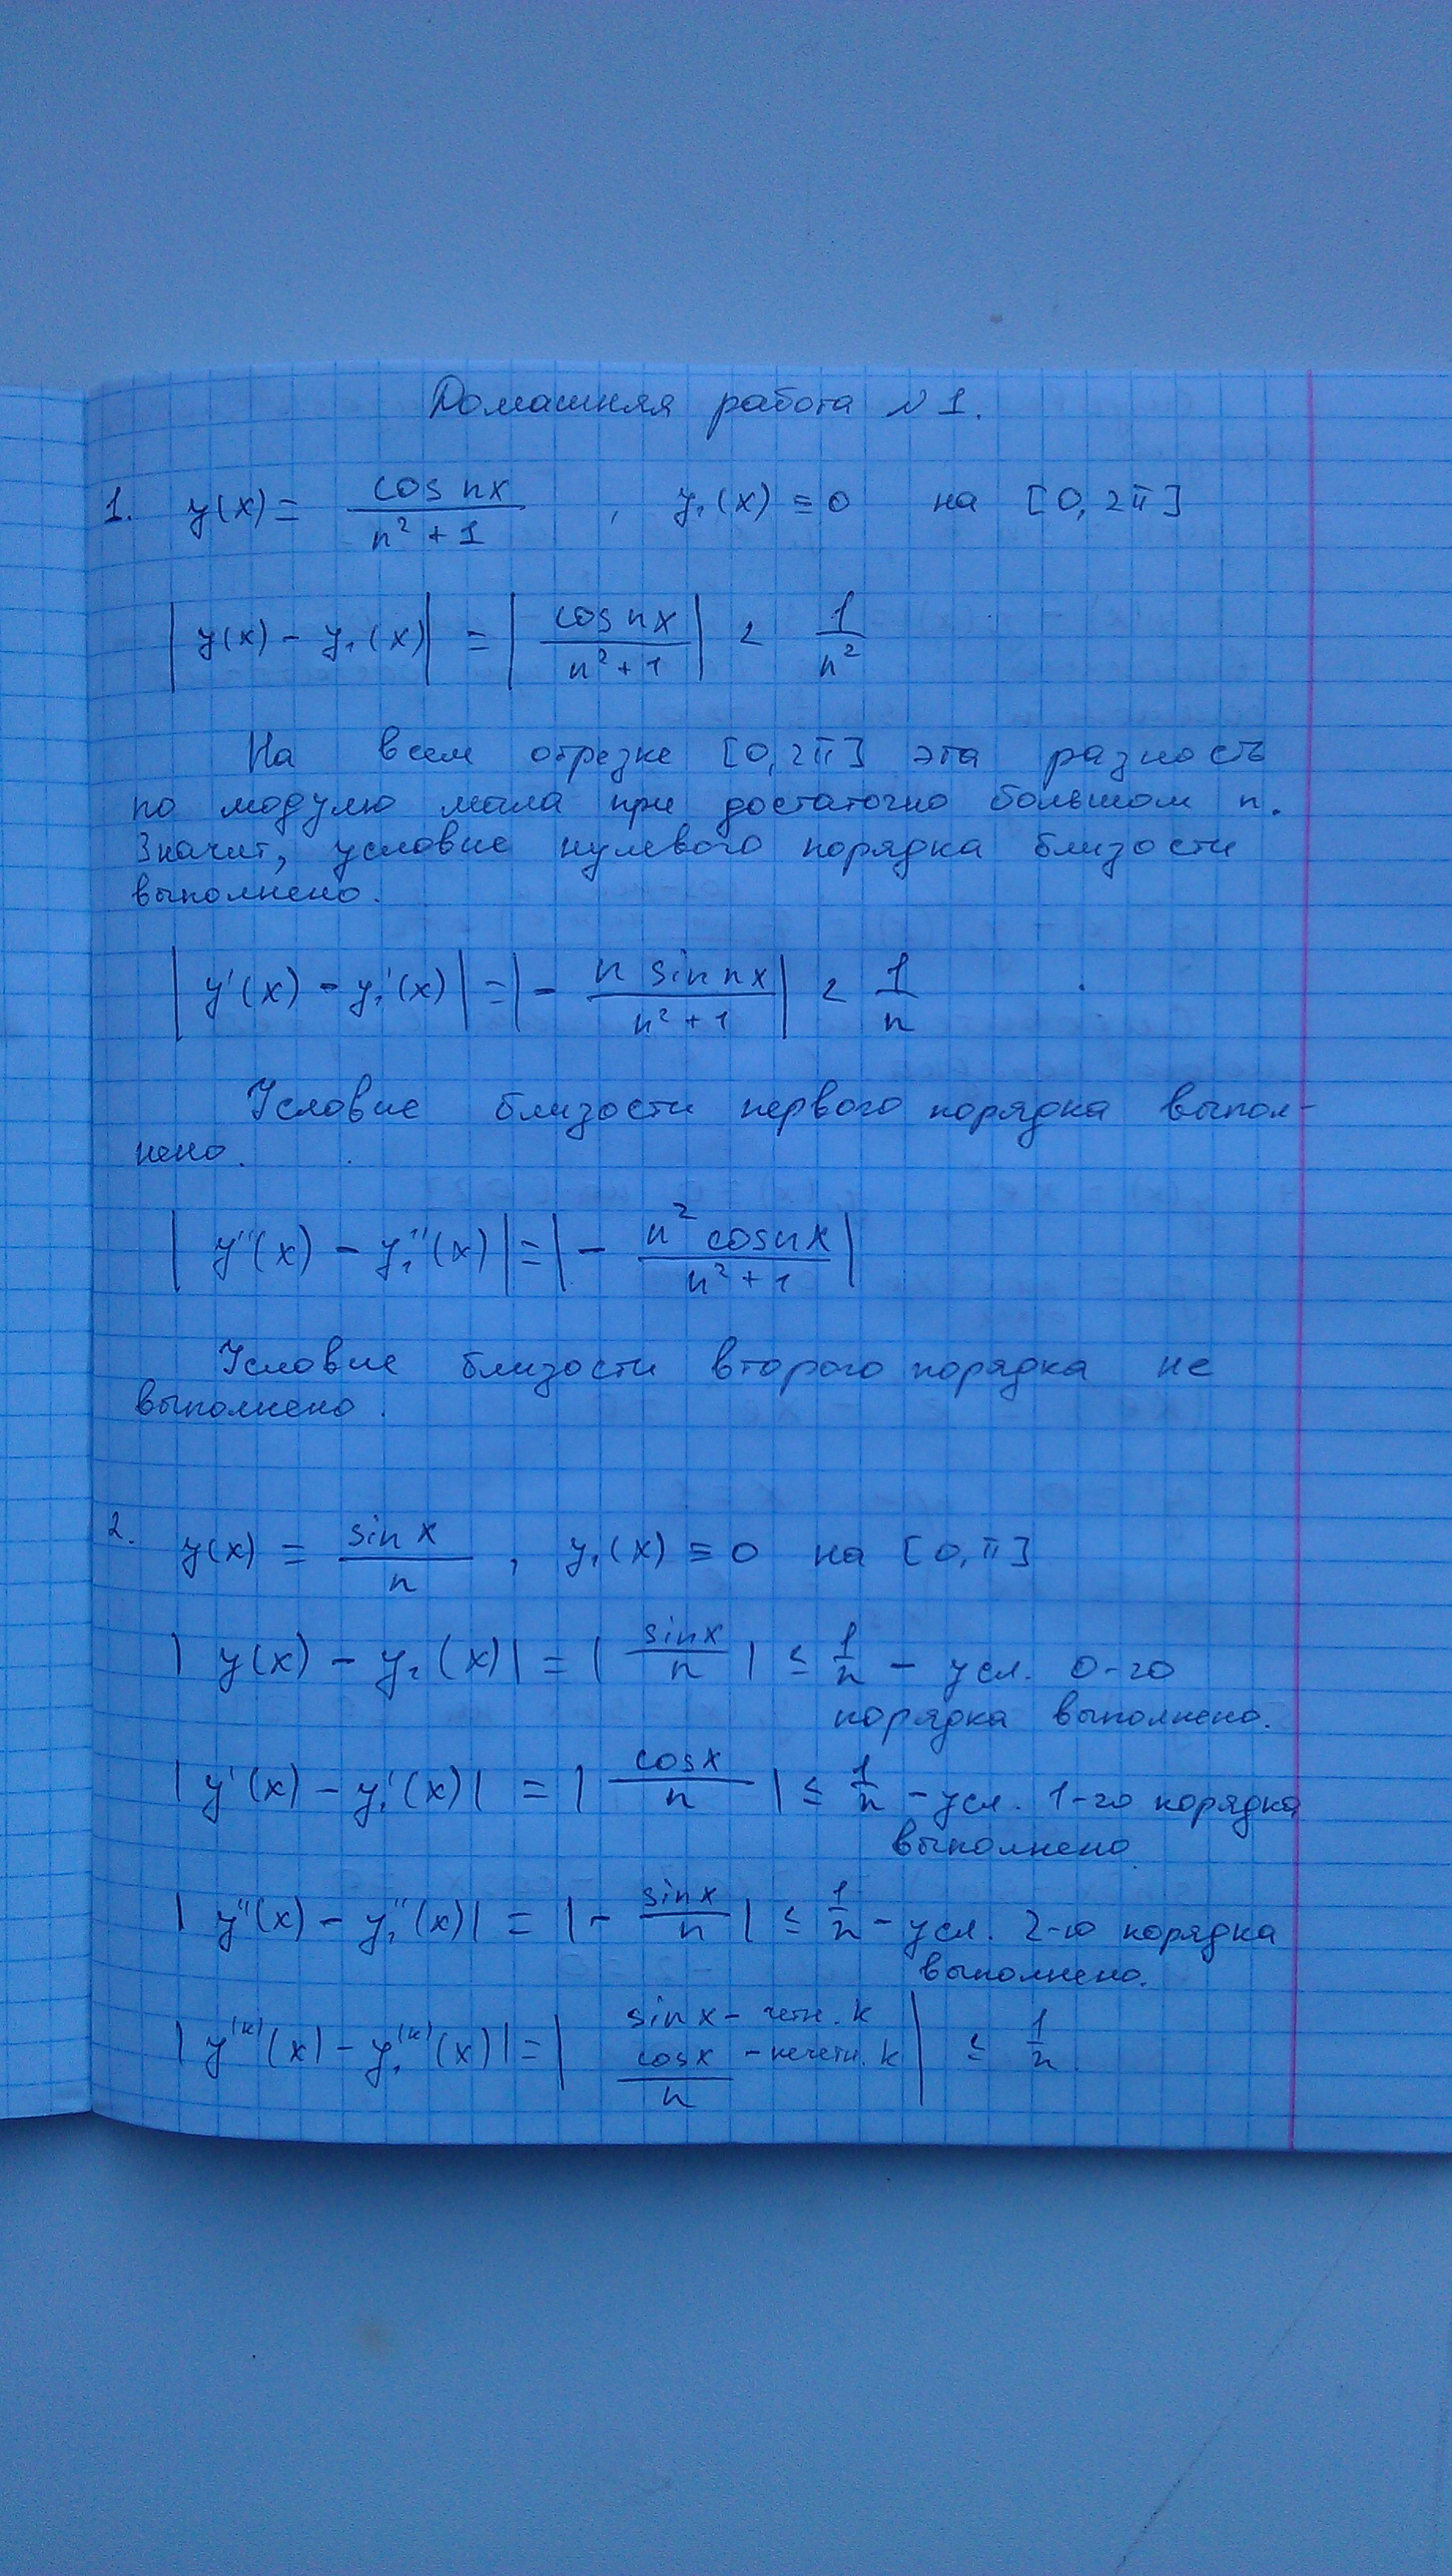 Домашняя работа №1.
1. y(x) = cos nx / (n² + 1) , y₁(x) ≡ 0 на [0, 2π]
|y(x) - y₁(x)| = |cos nx / (n² + 1)| < 1/n²
На всем отрезке [0, 2π] эта разность
по модулю мала при достаточно большом n.
Значит, условие нулевого порядка близости
выполнено.
|y'(x) - y₁'(x)| = |- n sin nx / (n² + 1)| < 1/n
Условие близости первого порядка выпол-
нено.
|y''(x) - y₁''(x)| = |- n² cos nx / (n² + 1)|
Условие близости второго порядка не
выполнено.
2. y(x) = sin x / n , y₁(x) ≡ 0 на [0, π]
|y(x) - y₁(x)| = |sin x / n| ≤ 1/n - усл. 0-го
порядка выполнено.
|y'(x) - y₁'(x)| = |cos x / n| ≤ 1/n - усл. 1-го порядка
выполнено
|y''(x) - y₁''(x)| = |- sin x / n| ≤ 1/n - усл. 2-го порядка
выполнено.
sin x - четн. k
|y⁽ᵏ⁾(x) - y₁⁽ᵏ⁾(x)| = |cos x - нечетн. k / n| ≤ 1/n